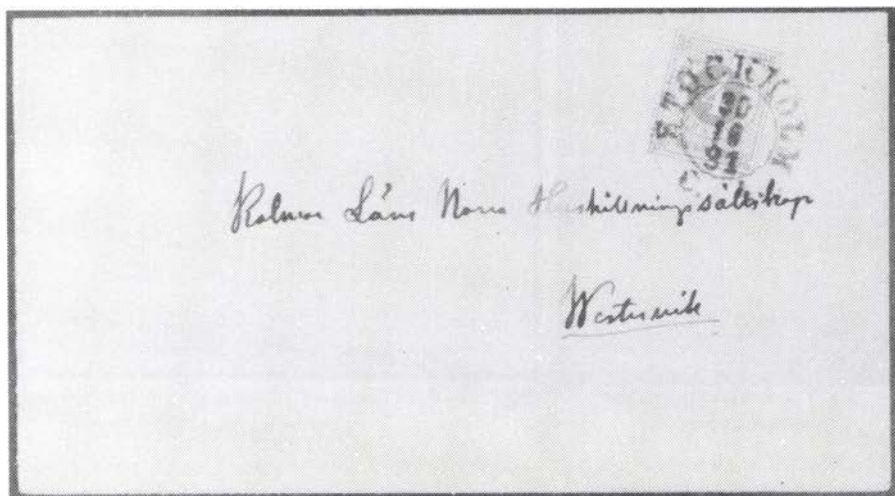 STOCKHOLM
Kalmar Läns Norra Hushållningssällskap
Westervik